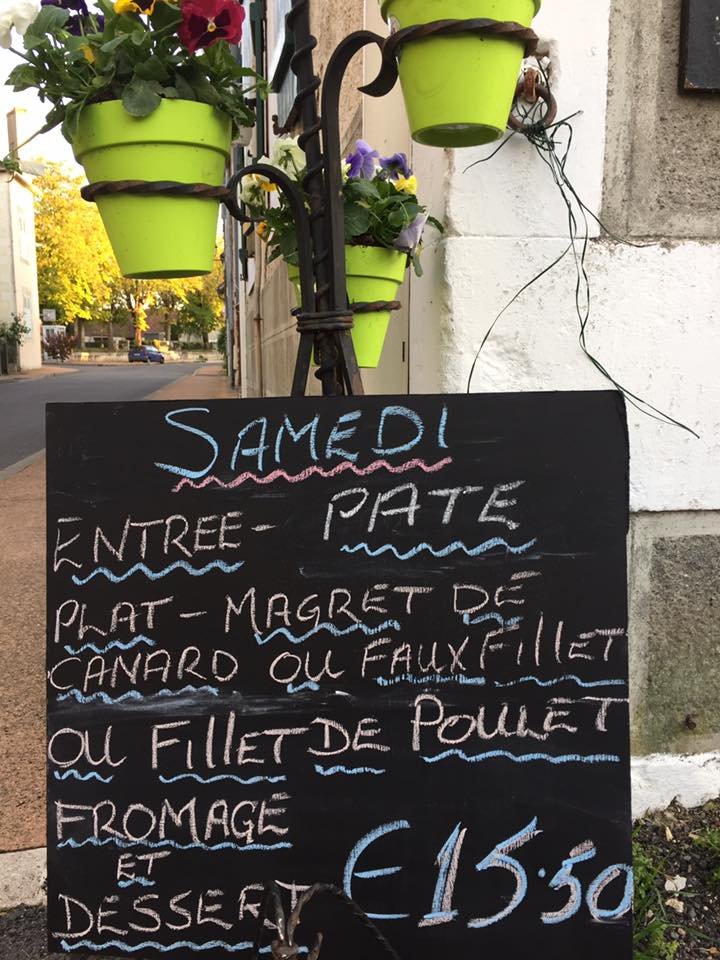 SAMEDI
ENTREE - PATE
PLAT - MAGRET DE
CANARD OU FAUX FILLET
OU FILLET DE POULET
FROMAGE
ET
DESSERT
€15.50